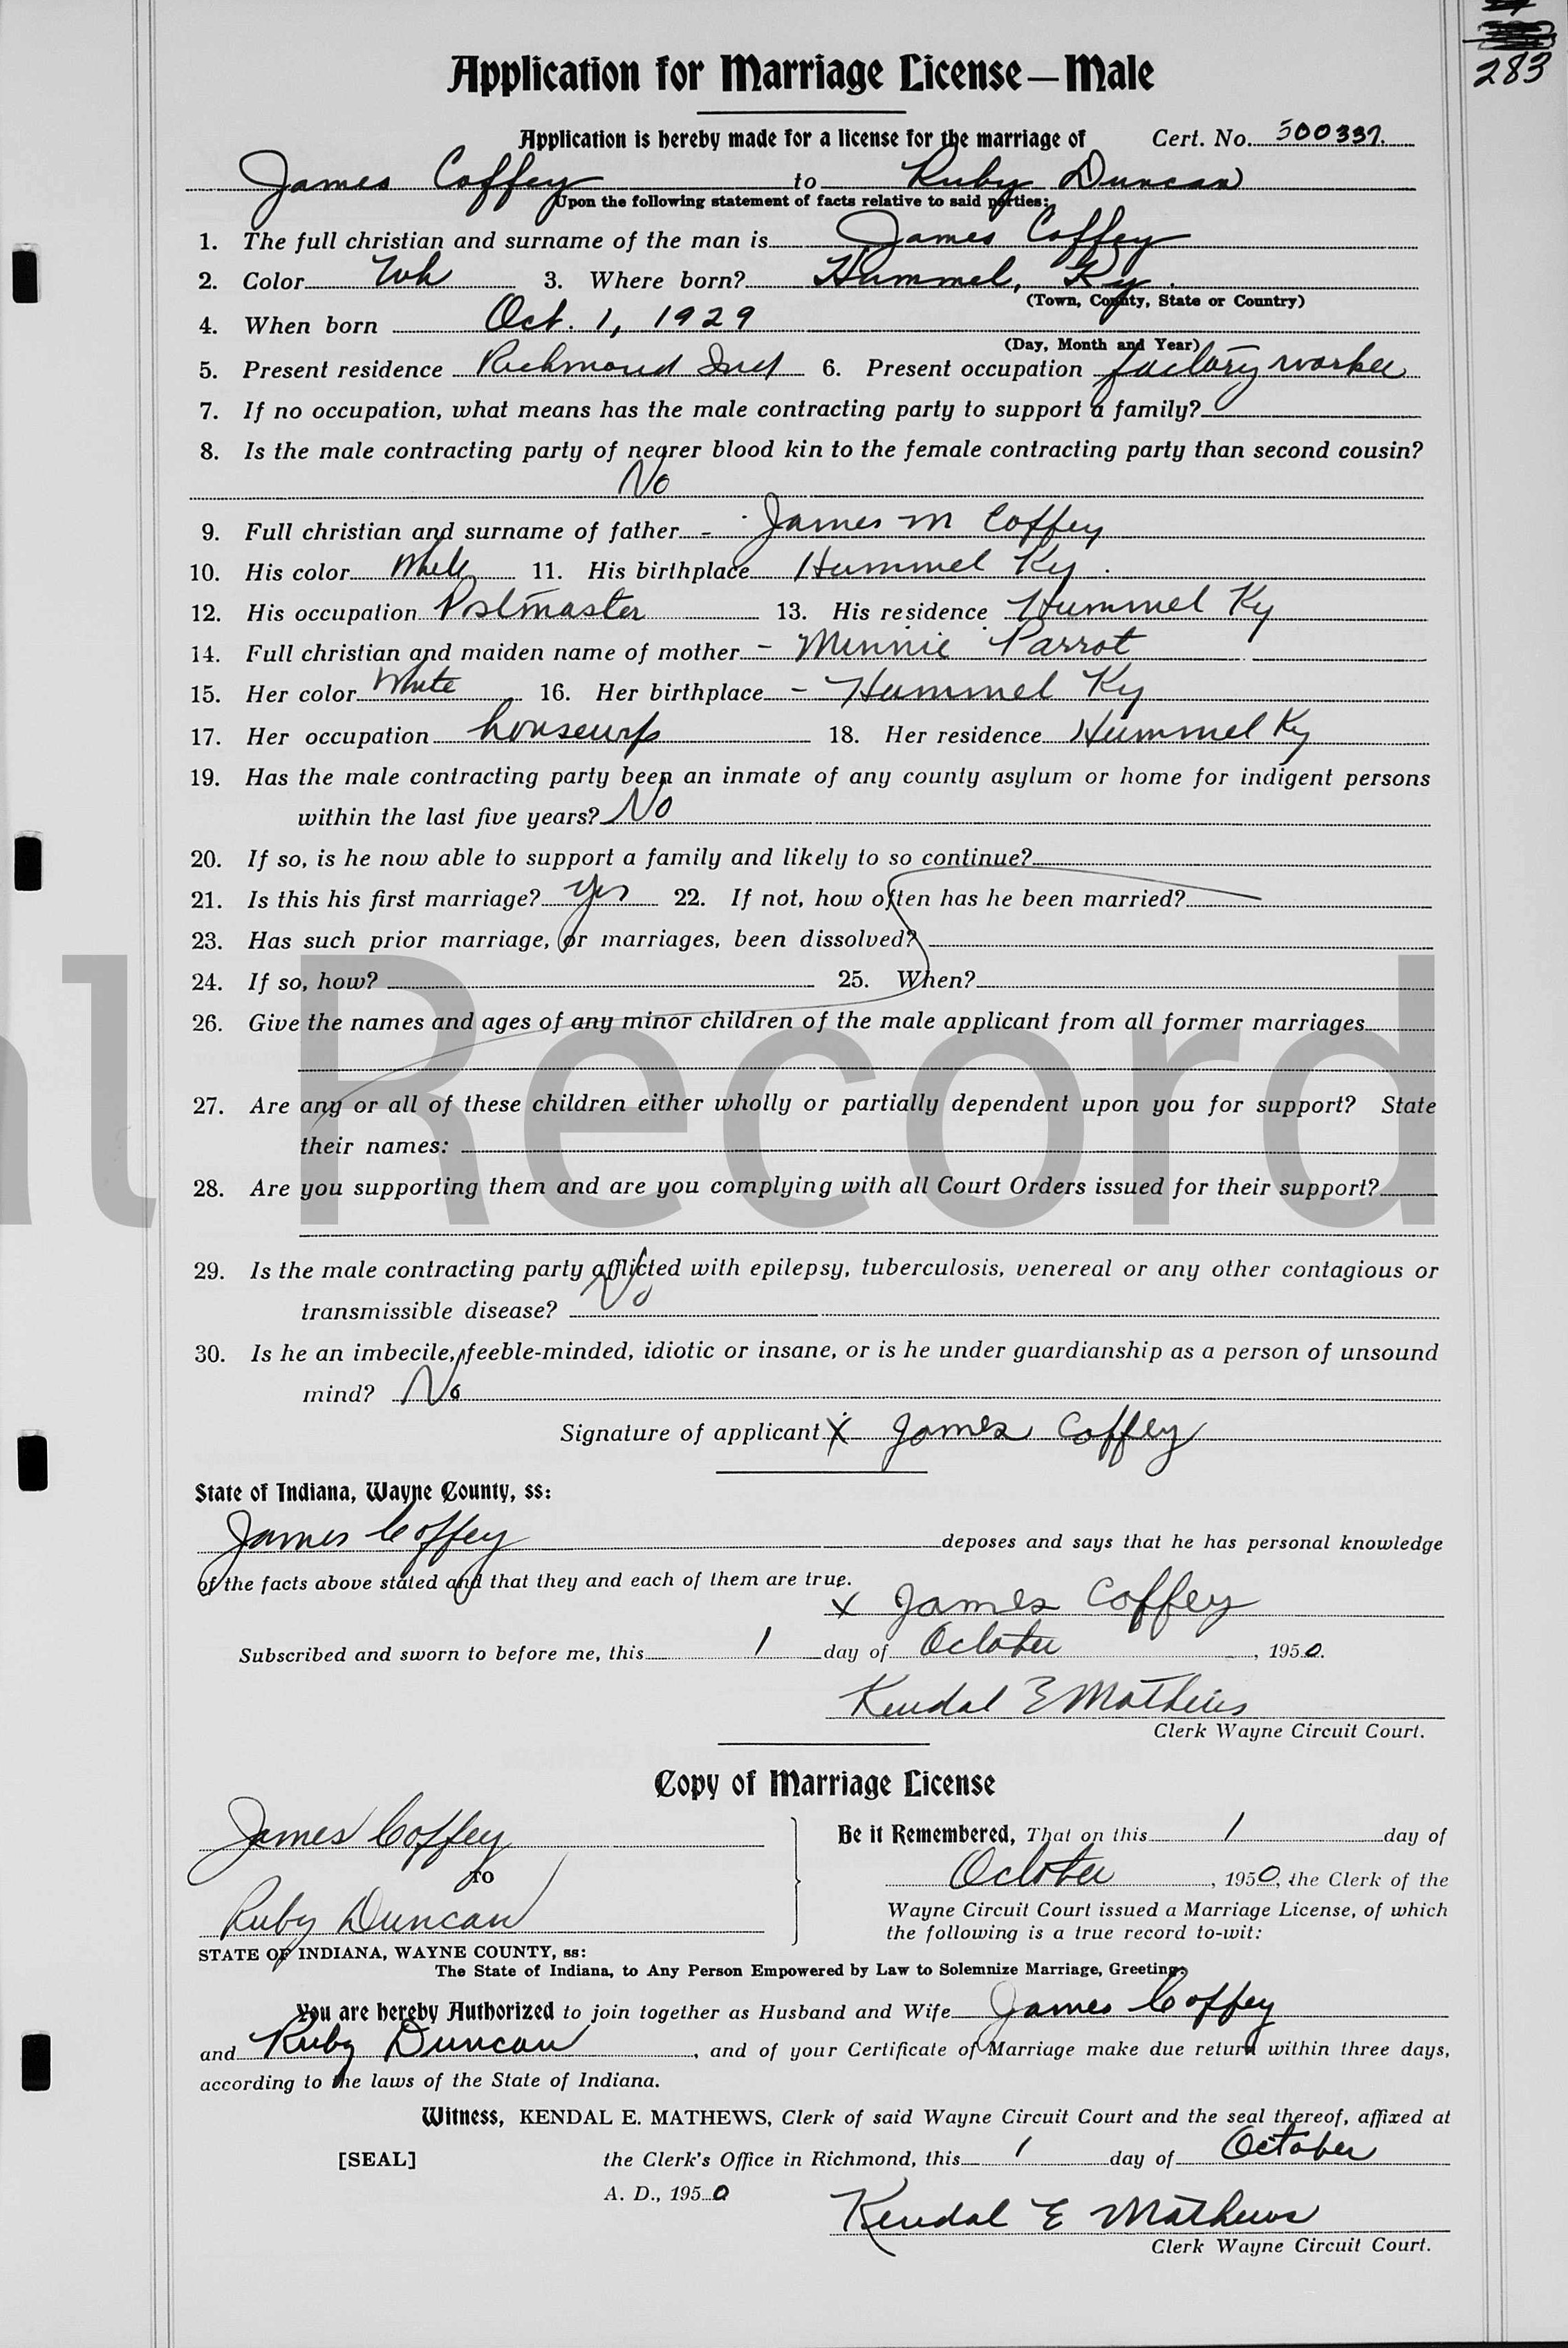 283
Application for Marriage License—Male
Application is hereby made for a license for the marriage of Cert. No. 500337.
James Coffey to Ruby Duncan
Upon the following statement of facts relative to said parties:
1. The full christian and surname of the man is James Coffey
2. Color Wh 3. Where born? Hummel, Ky.
(Town, County, State or Country)
4. When born Oct. 1, 1929
(Day, Month and Year)
5. Present residence Richmond Ind 6. Present occupation factory worker
7. If no occupation, what means has the male contracting party to support a family?
8. Is the male contracting party of nearer blood kin to the female contracting party than second cousin?
No
9. Full christian and surname of father - James M Coffey
10. His color White 11. His birthplace Hummel Ky.
12. His occupation Postmaster 13. His residence Hummel Ky
14. Full christian and maiden name of mother - Minnie Parrot
15. Her color White 16. Her birthplace - Hummel Ky
17. Her occupation housewife 18. Her residence Hummel Ky
19. Has the male contracting party been an inmate of any county asylum or home for indigent persons
within the last five years? No
20. If so, is he now able to support a family and likely to so continue?
21. Is this his first marriage? yes 22. If not, how often has he been married?
23. Has such prior marriage, or marriages, been dissolved?
24. If so, how? 25. When?
26. Give the names and ages of any minor children of the male applicant from all former marriages
27. Are any or all of these children either wholly or partially dependent upon you for support? State
their names:
l Record
28. Are you supporting them and are you complying with all Court Orders issued for their support?
29. Is the male contracting party afflicted with epilepsy, tuberculosis, venereal or any other contagious or
transmissible disease? No
30. Is he an imbecile, feeble-minded, idiotic or insane, or is he under guardianship as a person of unsound
mind? No
Signature of applicant X James Coffey
State of Indiana, Wayne County, ss:
James Coffey deposes and says that he has personal knowledge
of the facts above stated and that they and each of them are true.
x James Coffey
Subscribed and sworn to before me, this 1 day of October, 1950.
Kendal E Mathews
Clerk Wayne Circuit Court.
Copy of Marriage License
James Coffey
TO
Ruby Duncan
Be it Remembered, That on this 1 day of
October, 1950, the Clerk of the
Wayne Circuit Court issued a Marriage License, of which
the following is a true record to-wit:
STATE OF INDIANA, WAYNE COUNTY, ss:
The State of Indiana, to Any Person Empowered by Law to Solemnize Marriage, Greeting:
You are hereby Authorized to join together as Husband and Wife James Coffey
and Ruby Duncan, and of your Certificate of Marriage make due return within three days,
according to the laws of the State of Indiana.
Witness, KENDAL E. MATHEWS, Clerk of said Wayne Circuit Court and the seal thereof, affixed at
[SEAL] the Clerk's Office in Richmond, this 1 day of October
A. D., 1950
Kendal E Mathews
Clerk Wayne Circuit Court.